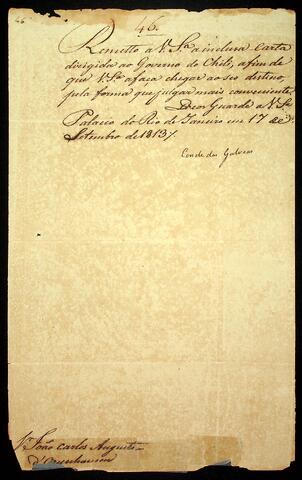 46
46.
Remetto a V. Sa. a inclusa Carta
dirigida ao Governo do Chili, afim de
que V. Sa. a faça chegar ao seo destino,
pela forma que julgar mais conveniente.
Deos Guarde a V. Sa.
Palacio do Rio de Janeiro em 17 de
Setembro de 1813.
Conde das Galveas
Sr. João Carlos Augusto
d'Oyenhausen